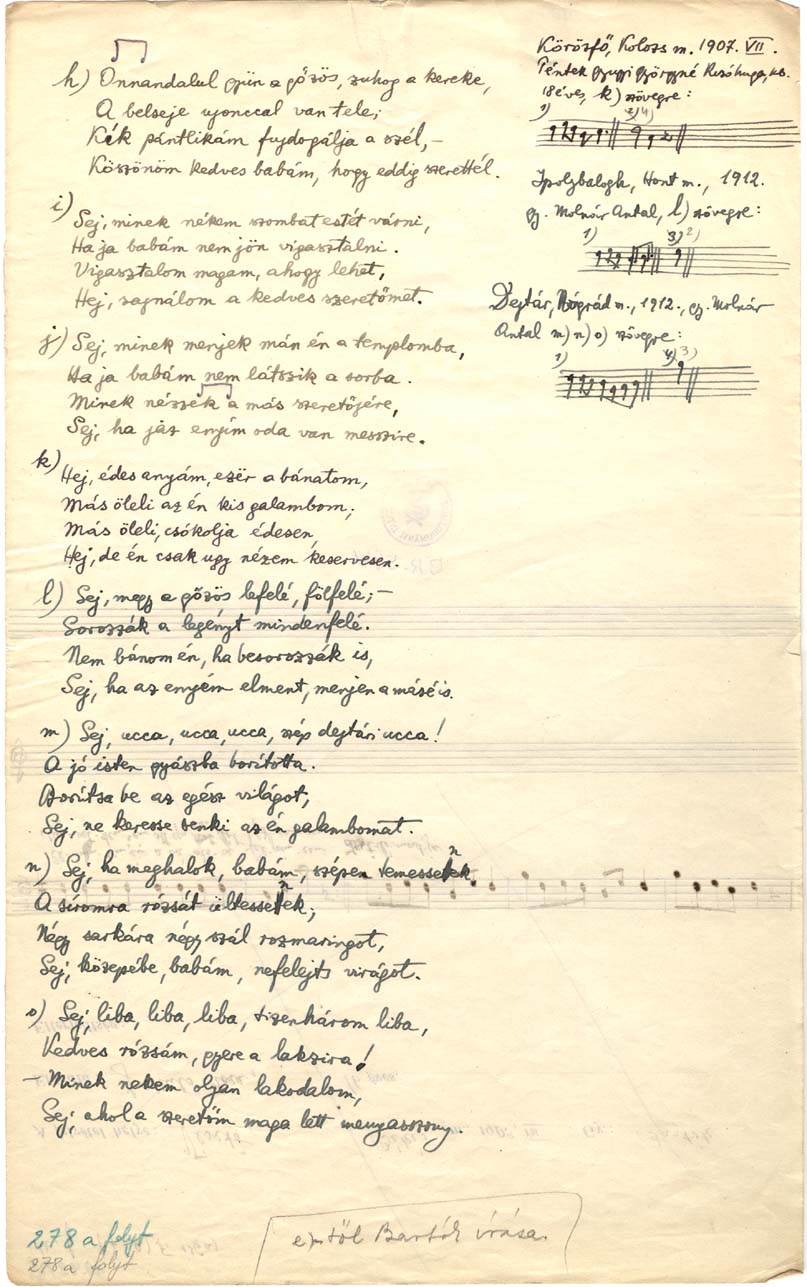 h) Onnandalul gyün a gőzös, zuhog a kereke,
A belseje ujonccal van tele;
Kék pántlikám fujdogálja a szél, –
Köszönöm kedves babám, hogy eddig szerettél.
i) Sej, minek nékem szombat estét várni,
Ha ja babám nem jön vigasztalni.
Vigasztalom magam, ahogy lehet,
Hej, sajnálom a kedves szeretőmet.
j) Sej, minek menjek mán én a templomba,
Ha ja babám nem látszik a sorba.
Minek nézzek a más szeretőjére,
Sej, ha jaz enyím oda van messzire.
k) Hej, édes anyám, ezër a bánatom,
Más öleli az én kis galambom;
Más öleli, csókolja édesen,
Hej, de én csak ugy nézem keservesen.
l) Sej, megy a gőzös lefelé, fölfelé; –
Sorozzák a legényt mindenfelé.
Nem bánom én, ha besorozzák is,
Sej, ha az enyém elment, menjen a másé is.
m) Sej, ucca, ucca, ucca, szép dejtári ucca!
A jó isten gyászba borította.
Borítsa be az egész világot,
Sej, ne keresse senki az én galambomat.
n) Sej, ha meghalok, babám, szépen temessenek,
A síromra rózsát ültessenek;
Négy sarkára négy szál rozmaringot,
Sej, közepébe, babám, nefelejts virágot.
o) Sej, liba, liba, liba, tizenhárom liba,
Kedves rózsám, gyere a lakzira!
– Minek nekem olyan lakodalom,
Sej, ahol a szeretőm maga lett menyasszony.
Körösfő, Kolozs m. 1907. VII.
Péntek Gyugyi Györgyné
18 éves, k) szövegre:
1) 2) 4)
Ipolybalogh, Hont m., 1912.
gy. Molnár Antal, l) szövegre:
1) 3) 2)
Dejtár, Nógrád m., 1912., gy. Molnár
Antal m) n) o) szövegre:
1) 4) 3)
278 a folyt
278 a folyt
e)-től Bartók írása.